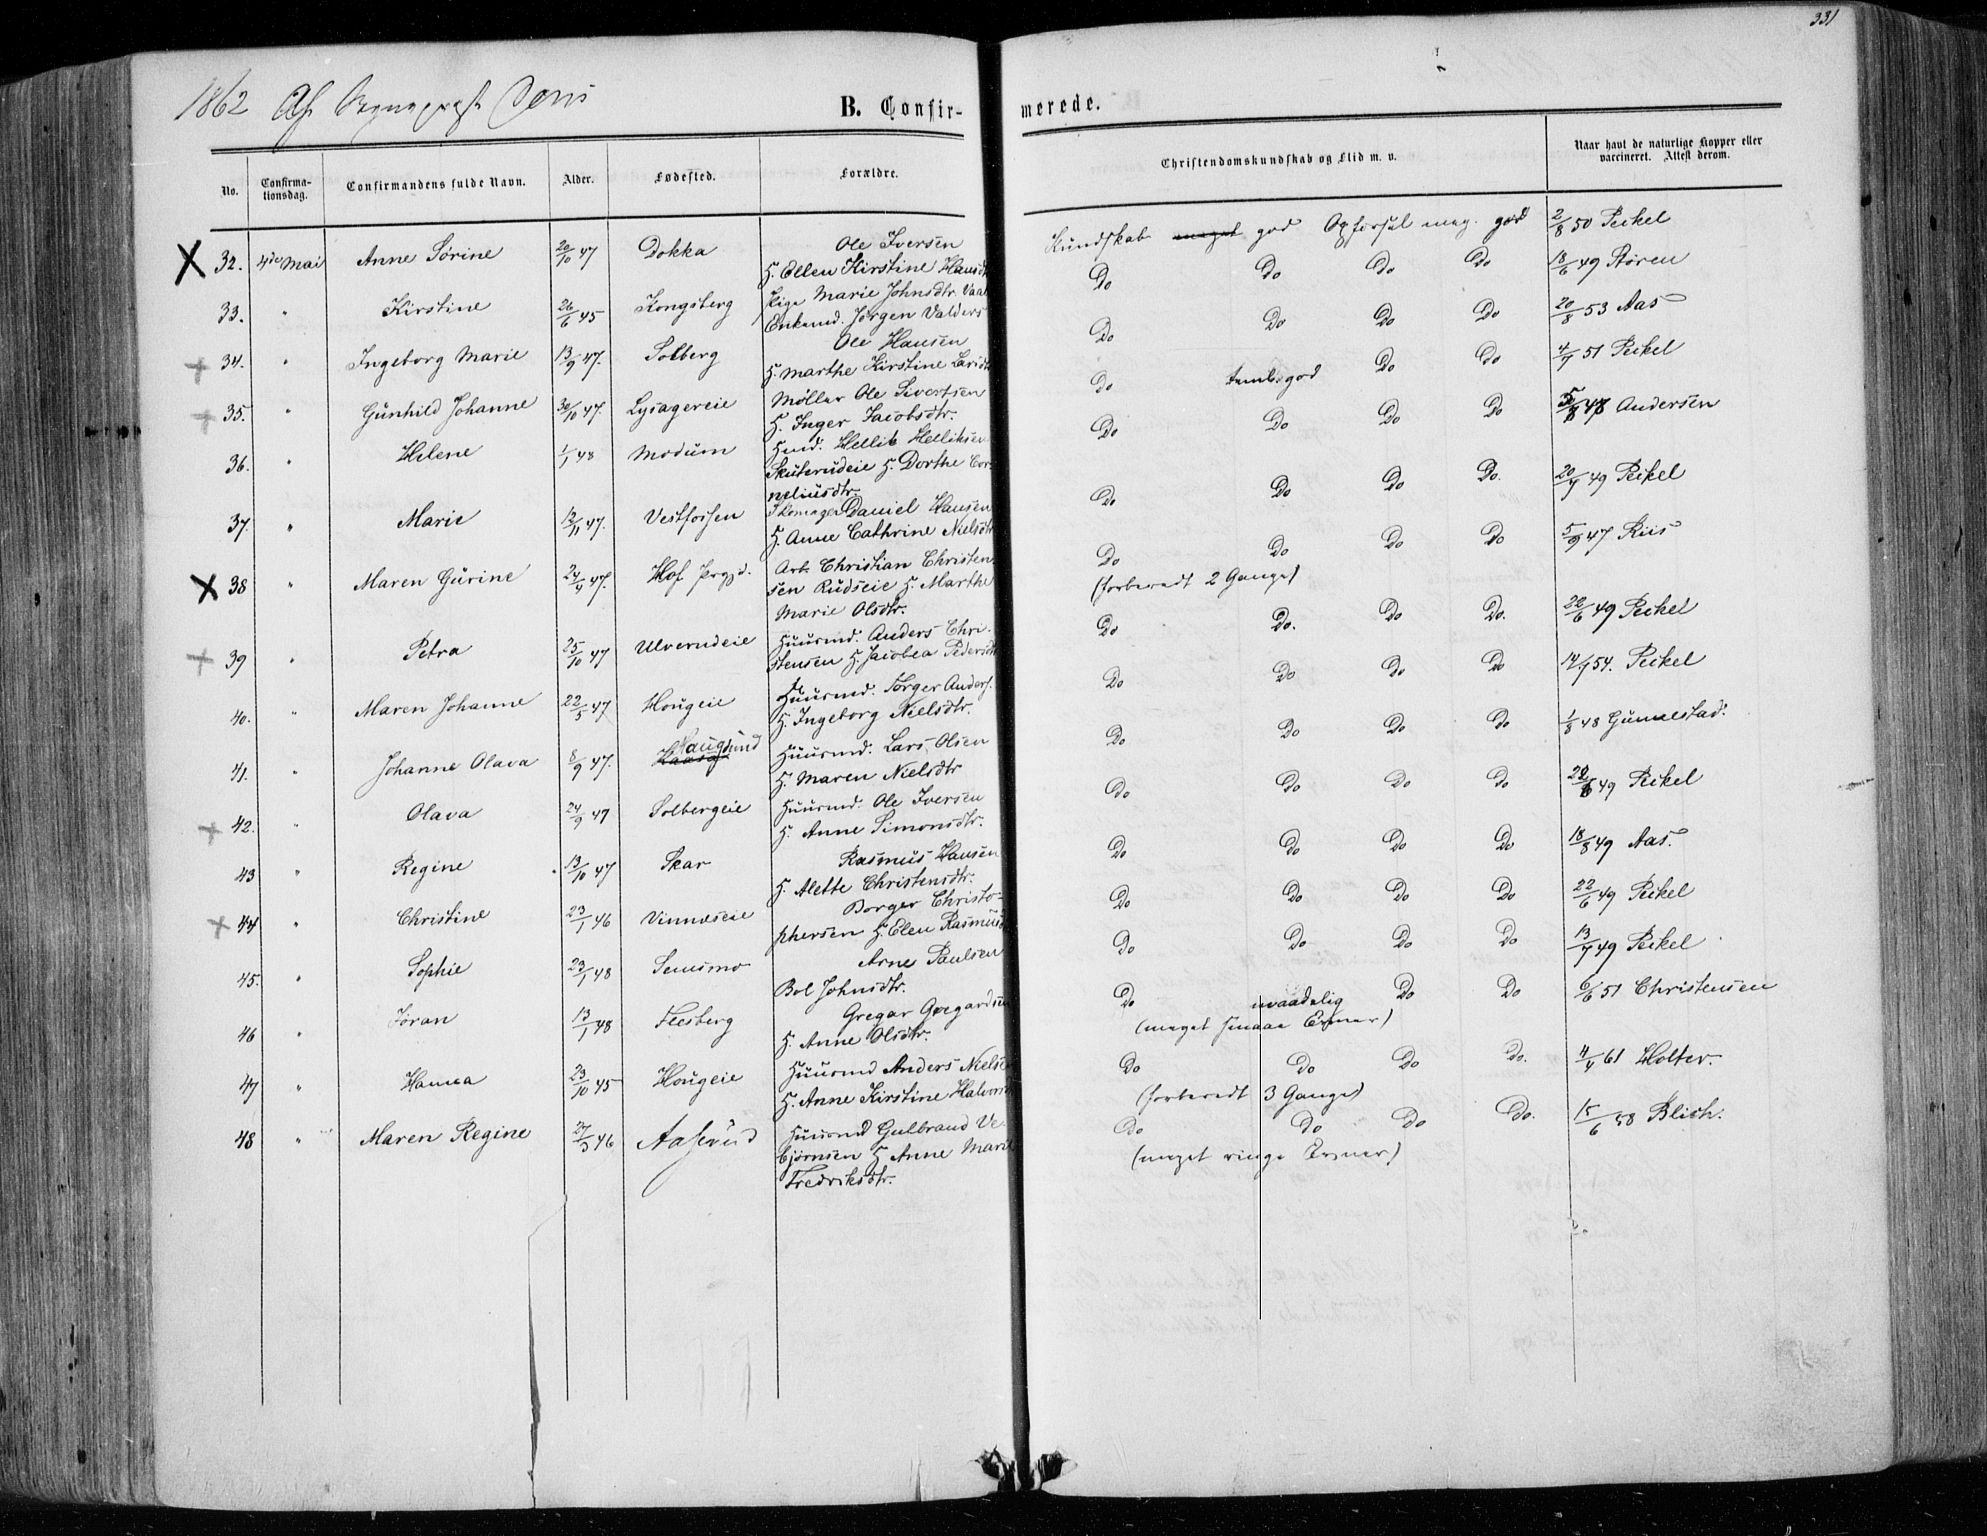 331
1862 Af
B. Confir- merede.
No. Confirma-tionsdag. Confirmandens fulde Navn. Alder. Fødested. Forældre. Christendomskundskab og Flid m. v. Naar havt de naturlige Kopper eller vaccineret. Attest derom.
32. 4de Mai Anne Sørine 20/10 47 Dokka Ole Iversen Kundskab meget god Opførsel meg. god 2/8 50 Peckel
H. Ellen Kirstine Hansdtr
33. " Kirstine 26/6 45 Kongsberg Pige Marie Johnsdtr. Do Do Do Do 18/6 49 Støren
Enkemd. Jørgen Valders
34. " Ingeborg Marie 13/9 47. Solberg Ole Hansen Do Do Do Do 20/8 53 Aas
H. Marthe Kirstine Larsdtr
35. " Gunhild Johanne 30/10 47. Lysagereie Møller Ole Sivertsen Do temb. god Do Do 4/7 51 Peckel
H. Inger Jacobsdtr.
36. " Helene 1/1 48 Modum Hmd. Hellik Helliksen Do Do Do Do 48 Andersen
Skuterudeie H. Dorthe Cor-
neliusdtr.
37. " Marie 12/11 47. Vestfossen Skomager Daniel Hansen Do Do Do Do. 20/7 49 Peckel
H. Anne Cathrine Nielsdtr
38 " Maren Gurine 24/4 47. Hof Prgjd. Arb. Christian Christen- Do Do Do Do 5/9 47 Riis
sen Rudseie H. Marthe (forberedt 2 Gange)
Marie Olsdtr.
39 " Petra 25/10 47 Ulverudeie Huusmd. Anders Chri- Do Do. Do Do. 22/6 49 Peckel
stensen H. Jacobea Pedersdtr
40. " Maren Johanne 22/5 47 Hougeie Huusmd. Torger Anders. Do Do Do Do 14/7 54. Peckel
H. Ingeborg Nielsdtr.
41. " Johanne Olava 8/9 47. Haugsund Huusmd. Lars Olsen Do Do Do Do 1/8 48 Gumelstad.
H. Maren Nielsdtr
42. " Olava 24/9 47 Solbergeie Huusmd. Ole Iversen Do Do Do Do 49 Peckel
H. Anne Simonsdtr.
43 " Regine 13/10 47 Skar Rasmus Hansen Do Do Do Do 18/8 49 Aas.
H. Alette Christensdtr.
44 " Christine 23/1 46 Vinnæseie Borger Christo- Do Do Do Do 22/6 49 Peckel
phersen H. Elen Rasmusd
45. " Sophie 23/1 48 Semsmo Arne Paulsen Do Do Do Do 13/7 49 Peckel
Bol Johnsdtr.
46 " Jøran 13/1 48 Flesberg Gregar Gregardsen Do maadelig Do Do 6/6 51 Christensen
H. Anne Olsdtr. (meget smaae Evner)
47 " Hanna 23/10 45 Hougeie Huusmd Anders Nielsen Do Do Do Do. 11/4 61 Holter.
H. Anne Kirstine Halvorsd (forberedt 3 Gange)
48 " Maren Regine 27/3 46 Aaserud Huusmd Gulbrand Ve- Do Do Do Do. 15/6 58 Blich.
bjørnsen H Anne Marie (meget ringe Evner)
Fredriksdtr.